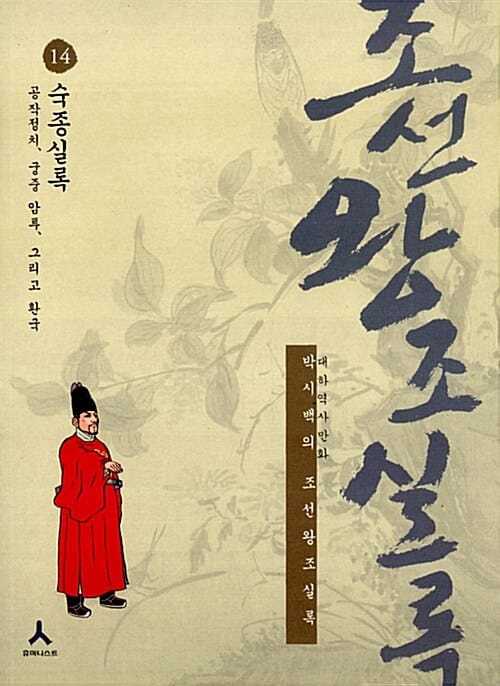 조선왕조실록
14
숙종실록
공작정치, 궁중 암투, 그리고 환국
대하역사만화
박시백의 조선왕조실록
휴머니스트